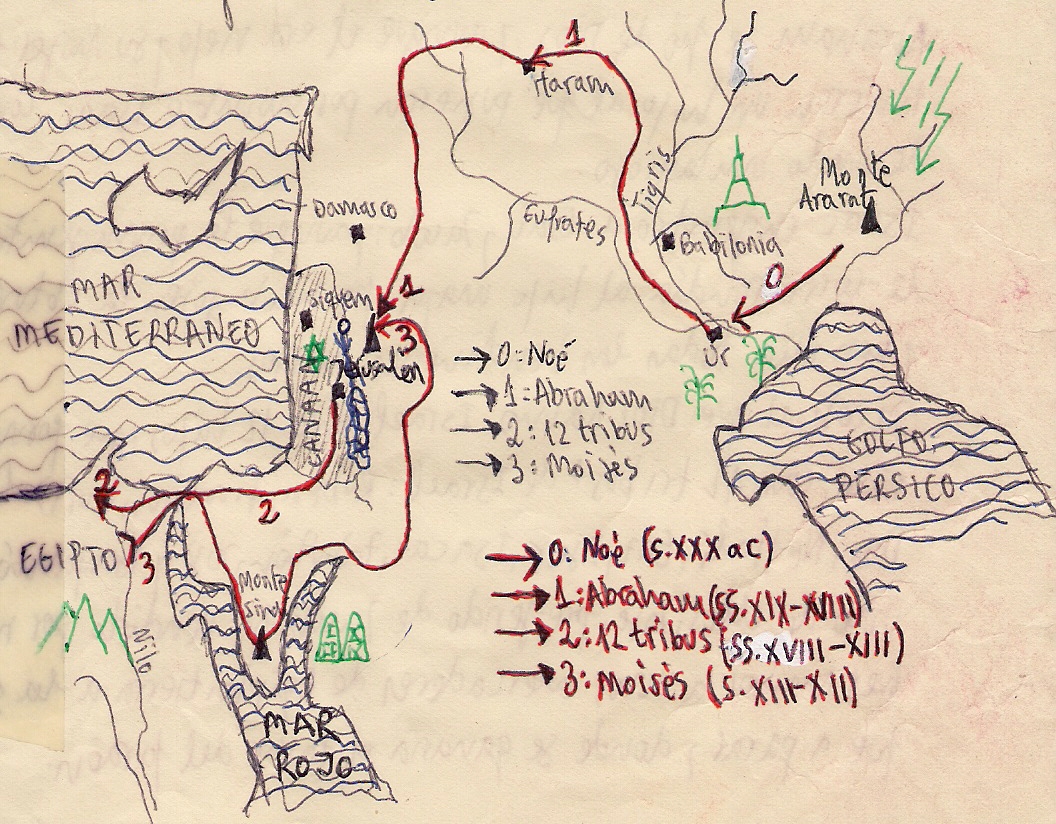 1
Haram
Tigris
Monte
Ararat
Damasco
Eufrates
Babilonia
0
MAR
MEDITERRANEO
Siquem
1
3
Ur
Jerusalén
CANAAN
0: Noé
1: Abraham
2: 12 tribus
3: Moisès
GOLFO
PÉRSICO
2
2
EGIPTO
3
Monte
Sinaí
Nilo
0: Noè (s.XXX aC)
1: Abraham (ss.XIX-XVIII)
2: 12 tribus (ss.XVIII-XIII)
3: Moisès (s.XIII-XII)
MAR
ROJO